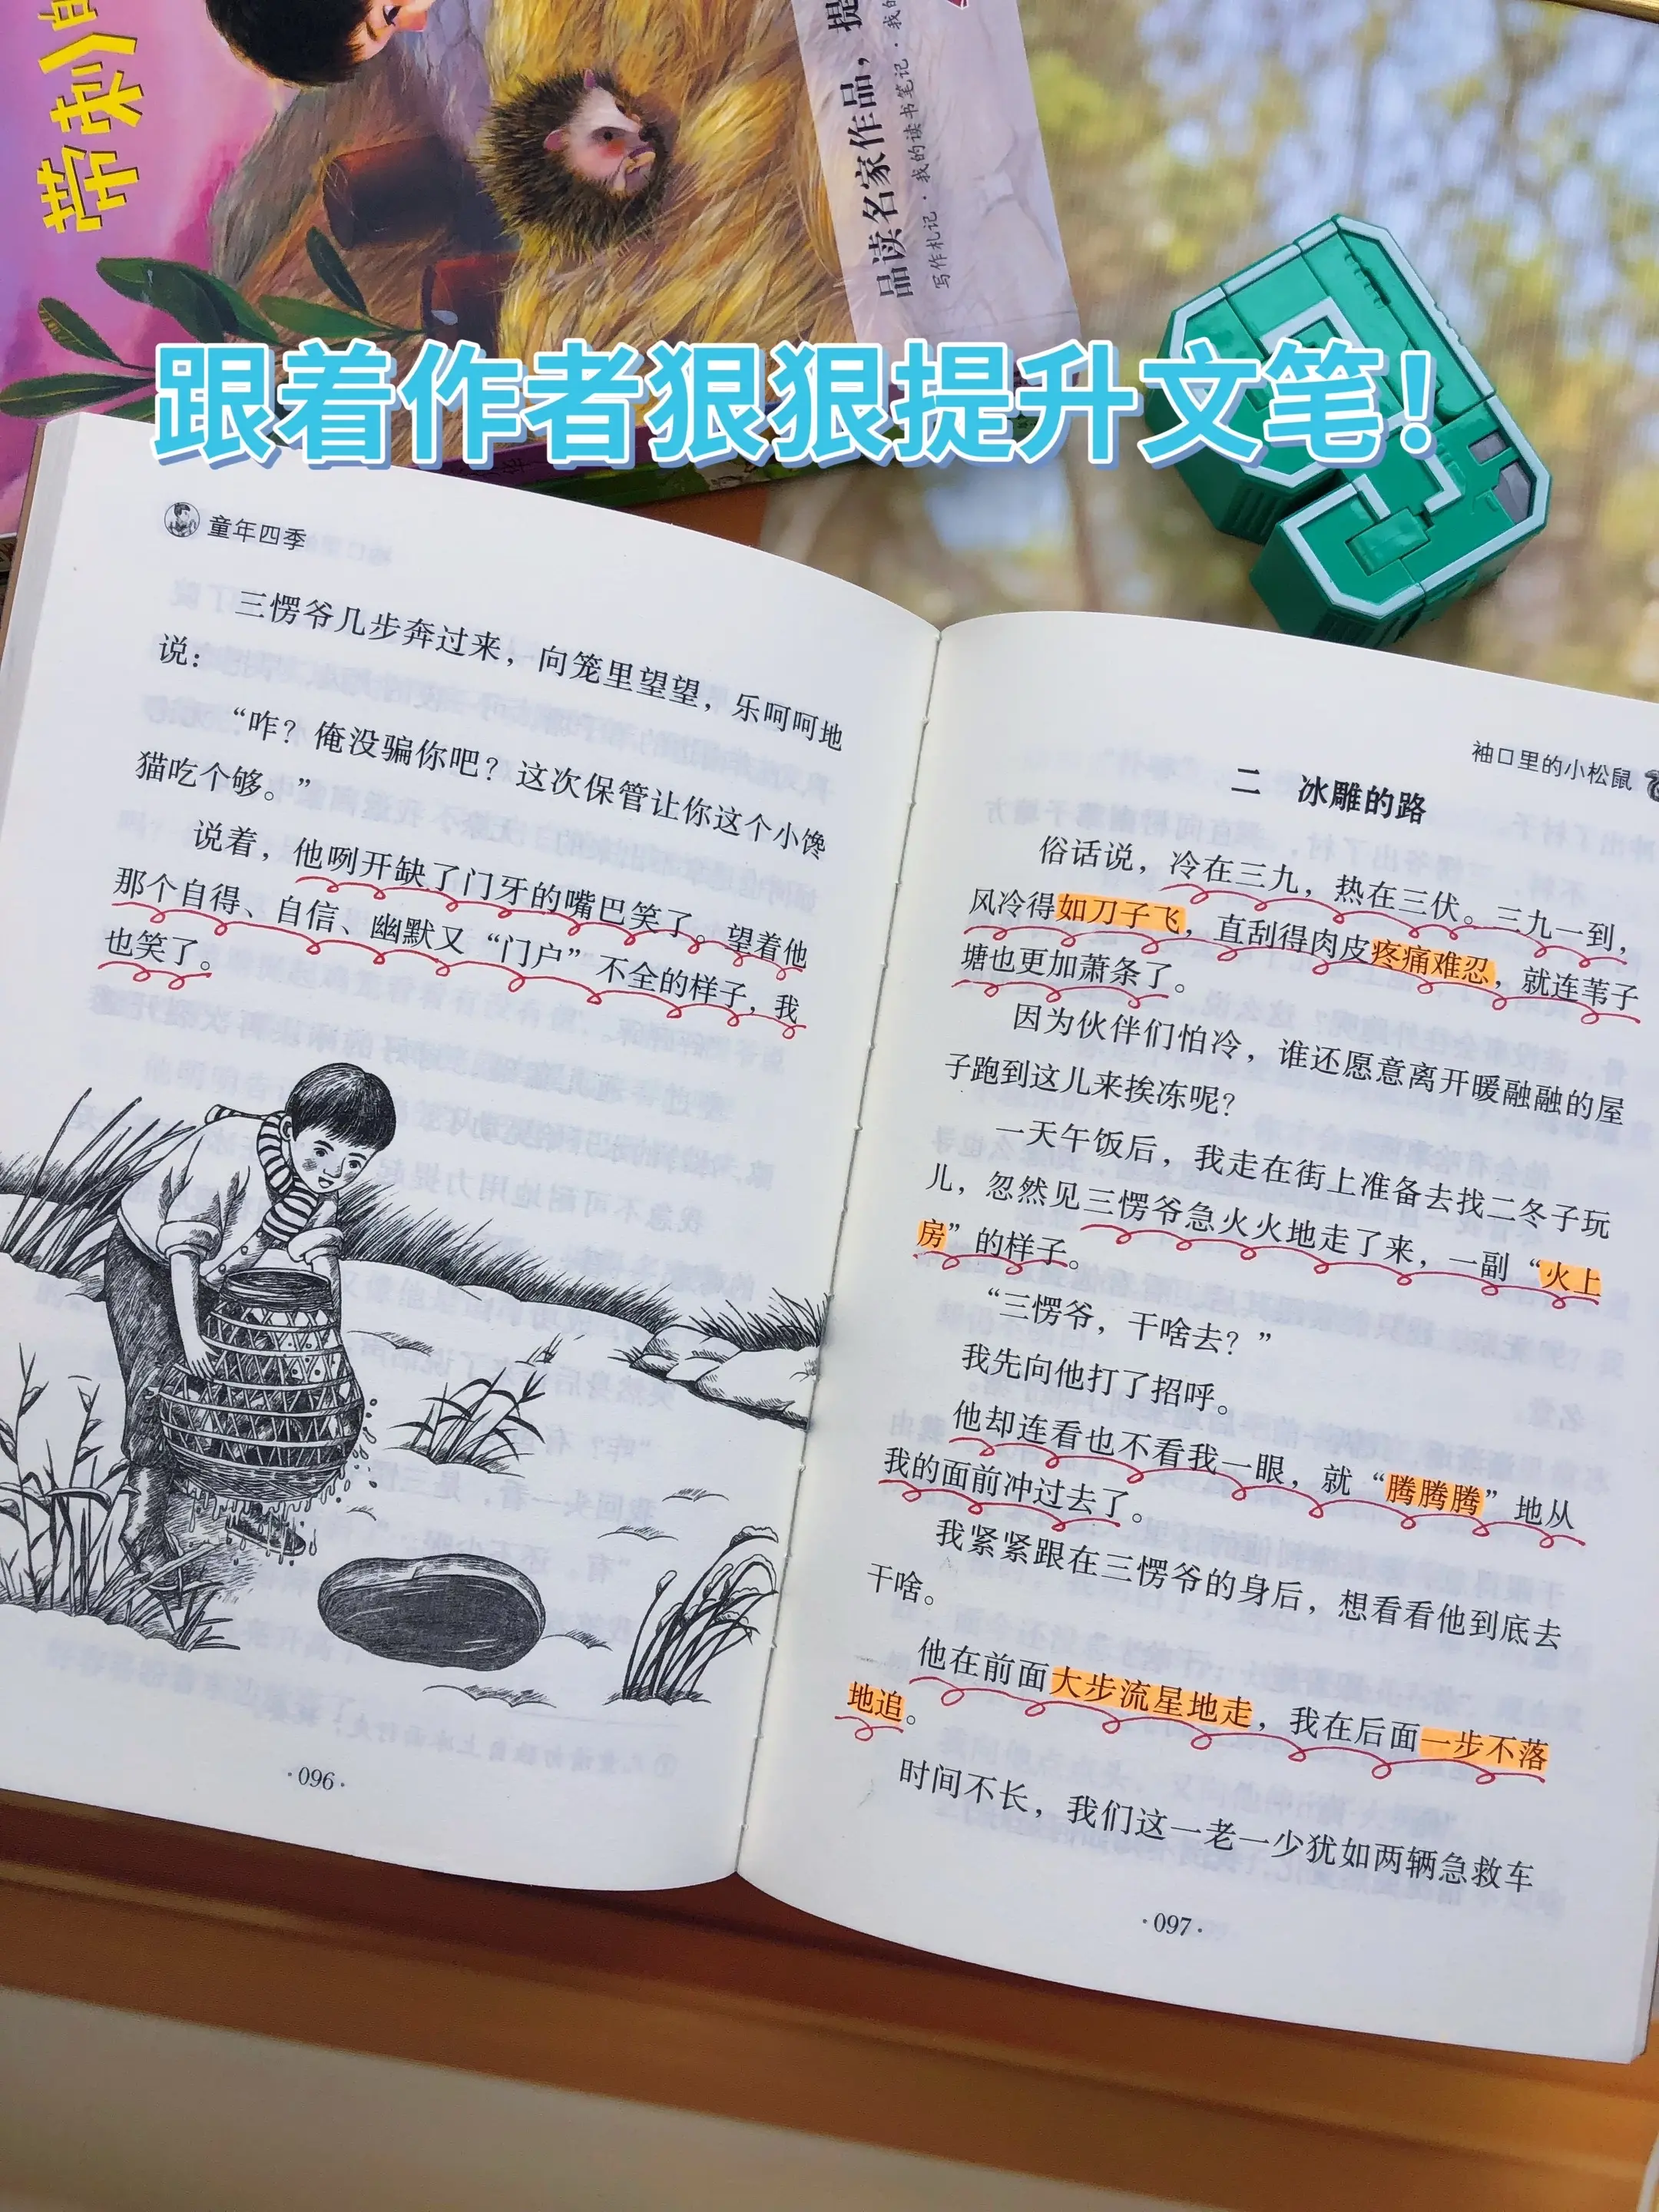 带刺
品读名家作品，提
写作札记·我的读书笔记·我的
跟着作者狠狠提升文笔！
童年四季
三愣爷几步奔过来，向笼里望望，乐呵呵地
说：
“咋？俺没骗你吧？这次保管让你这个小馋
猫吃个够。”
说着，他咧开缺了门牙的嘴巴笑了。望着他
那个自得、自信、幽默又“门户”不全的样子，我
也笑了。
·096·
袖口里的小松鼠
二　冰雕的路
俗话说，冷在三九，热在三伏。三九一到，
风冷得如刀子飞，直刮得肉皮疼痛难忍，就连苇子
塘也更加萧条了。
因为伙伴们怕冷，谁还愿意离开暖融融的屋
子跑到这儿来挨冻呢？
一天午饭后，我走在街上准备去找二冬子玩
儿，忽然见三愣爷急火火地走了来，一副“火上
房”的样子。
“三愣爷，干啥去？”
我先向他打了招呼。
他却连看也不看我一眼，就“腾腾腾”地从
我的面前冲过去了。
我紧紧跟在三愣爷的身后，想看看他到底去
干啥。
他在前面大步流星地走，我在后面一步不落
地追。
时间不长，我们这一老一少犹如两辆急救车
·097·